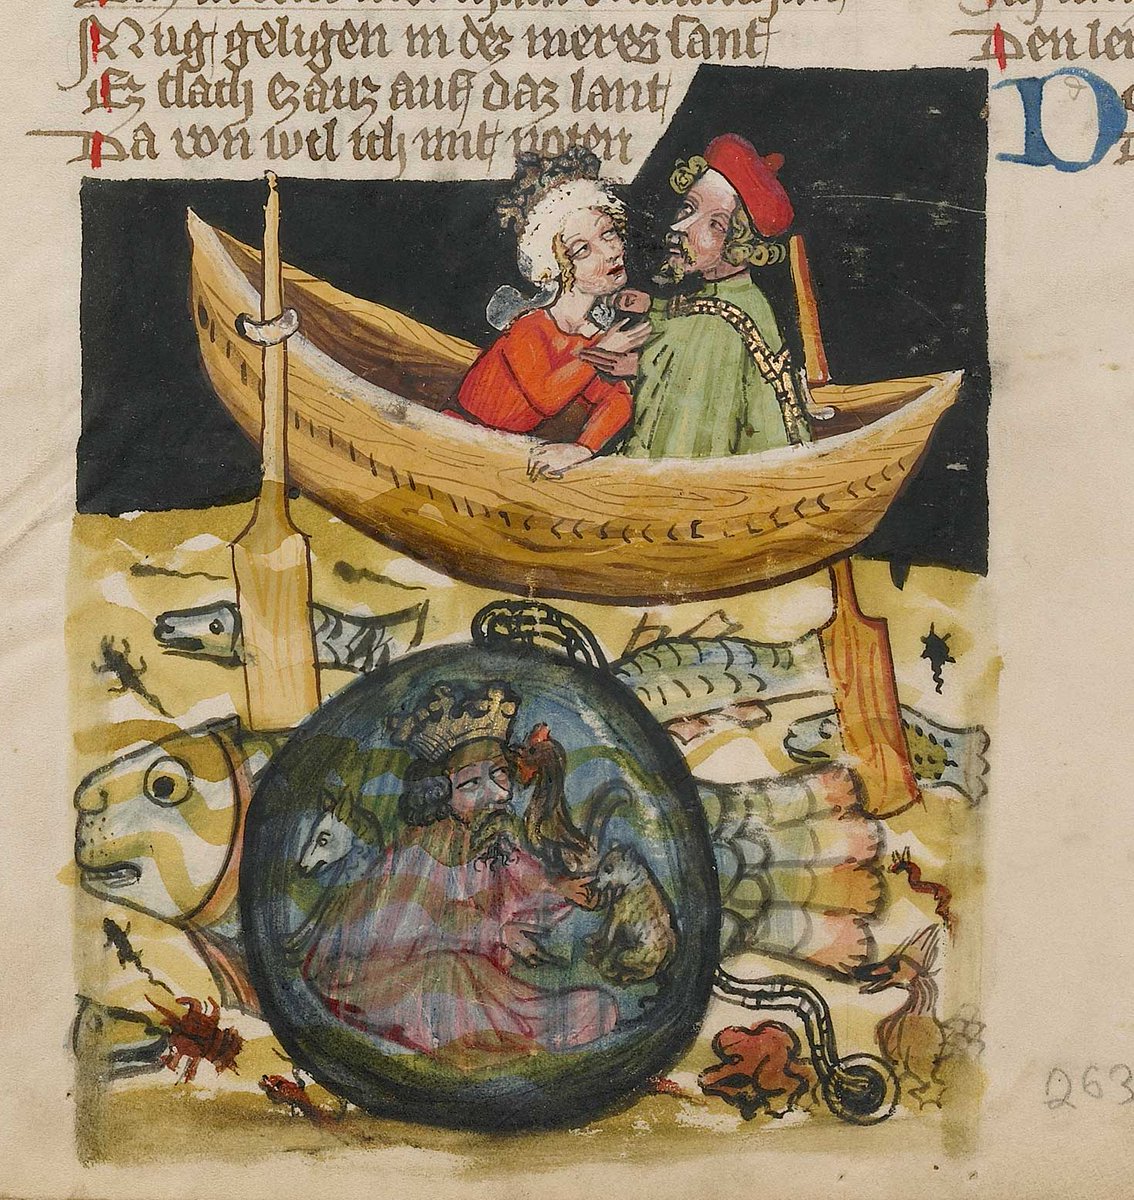 Mug geligen in des meres sant
Ez tlach ez auz auf daz lant
Da von wil ich mit noten
Den lei
D
263